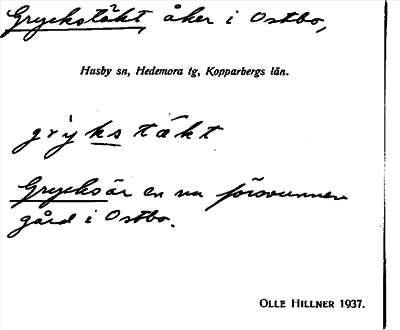 Gryckstäkt, åker i Ostbo,
Husby sn, Hedemora tg, Kopparbergs län.
grỳkstäkt
Grycks är en nu försvunnen
gård i Ostbo.
OLLE HILLNER 1937.